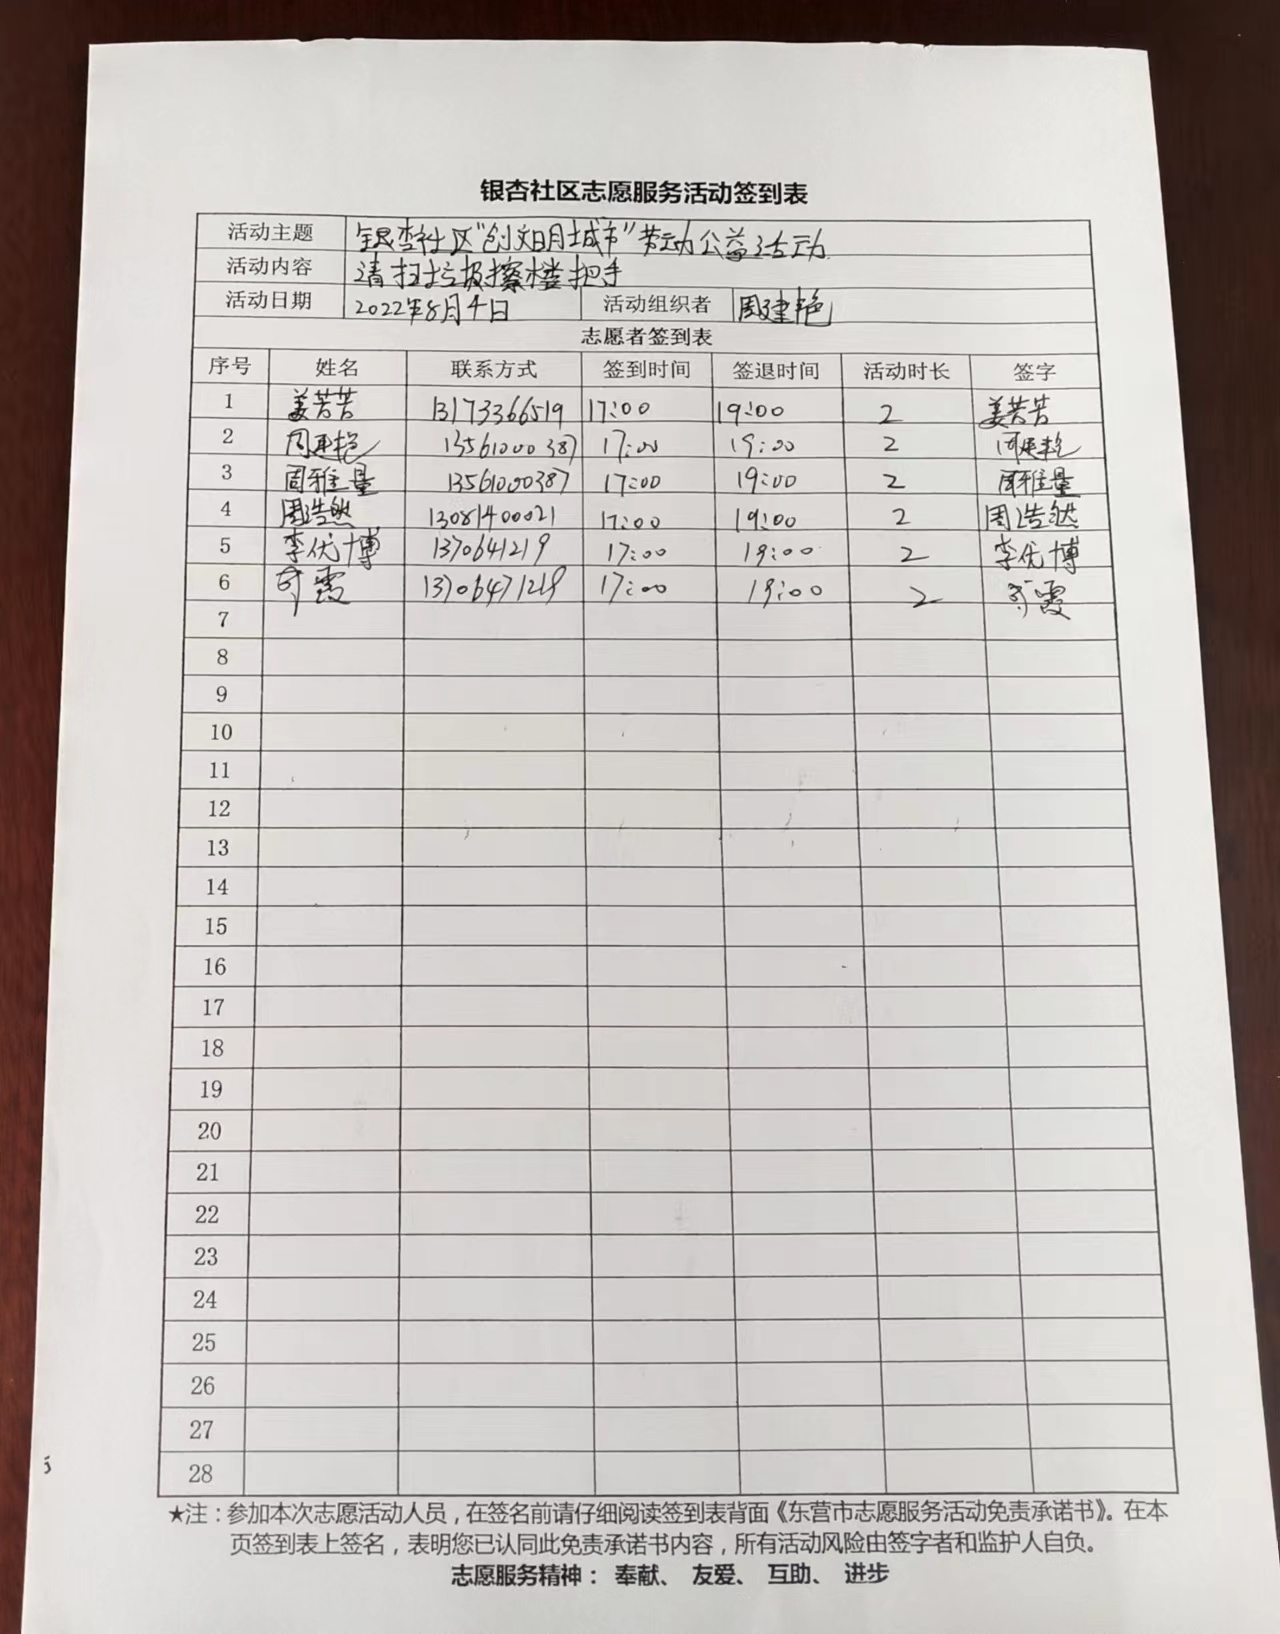 银杏社区志愿服务活动签到表
活动主题 银杏社区“创文明城市”劳动公益活动
活动内容 请扫垃圾擦楼把手
活动日期 2022年8月4日 活动组织者 周建艳
志愿者签到表
序号 姓名 联系方式 签到时间 签退时间 活动时长 签字
1 姜芳芳 13173366519 17:00 19:00 2 姜芳芳
2 周建艳 13561000387 17:00 19:00 2 周建艳
3 周雅量 13561000387 17:00 19:00 2 周雅量
4 周浩然 13081400021 17:00 19:00 2 周浩然
5 李优博 1370641219 17:00 19:00 2 李优博
6 霞 13706471219 17:00 19:00 2 霞
7
8
9
10
11
12
13
14
15
16
17
18
19
20
21
22
23
24
25
26
27
28
★注：参加本次志愿活动人员，在签名前请仔细阅读签到表背面《东营市志愿服务活动免责承诺书》。在本
页签到表上签名，表明您已认同此免责承诺书内容，所有活动风险由签字者和监护人自负。
志愿服务精神： 奉献、 友爱、 互助、 进步